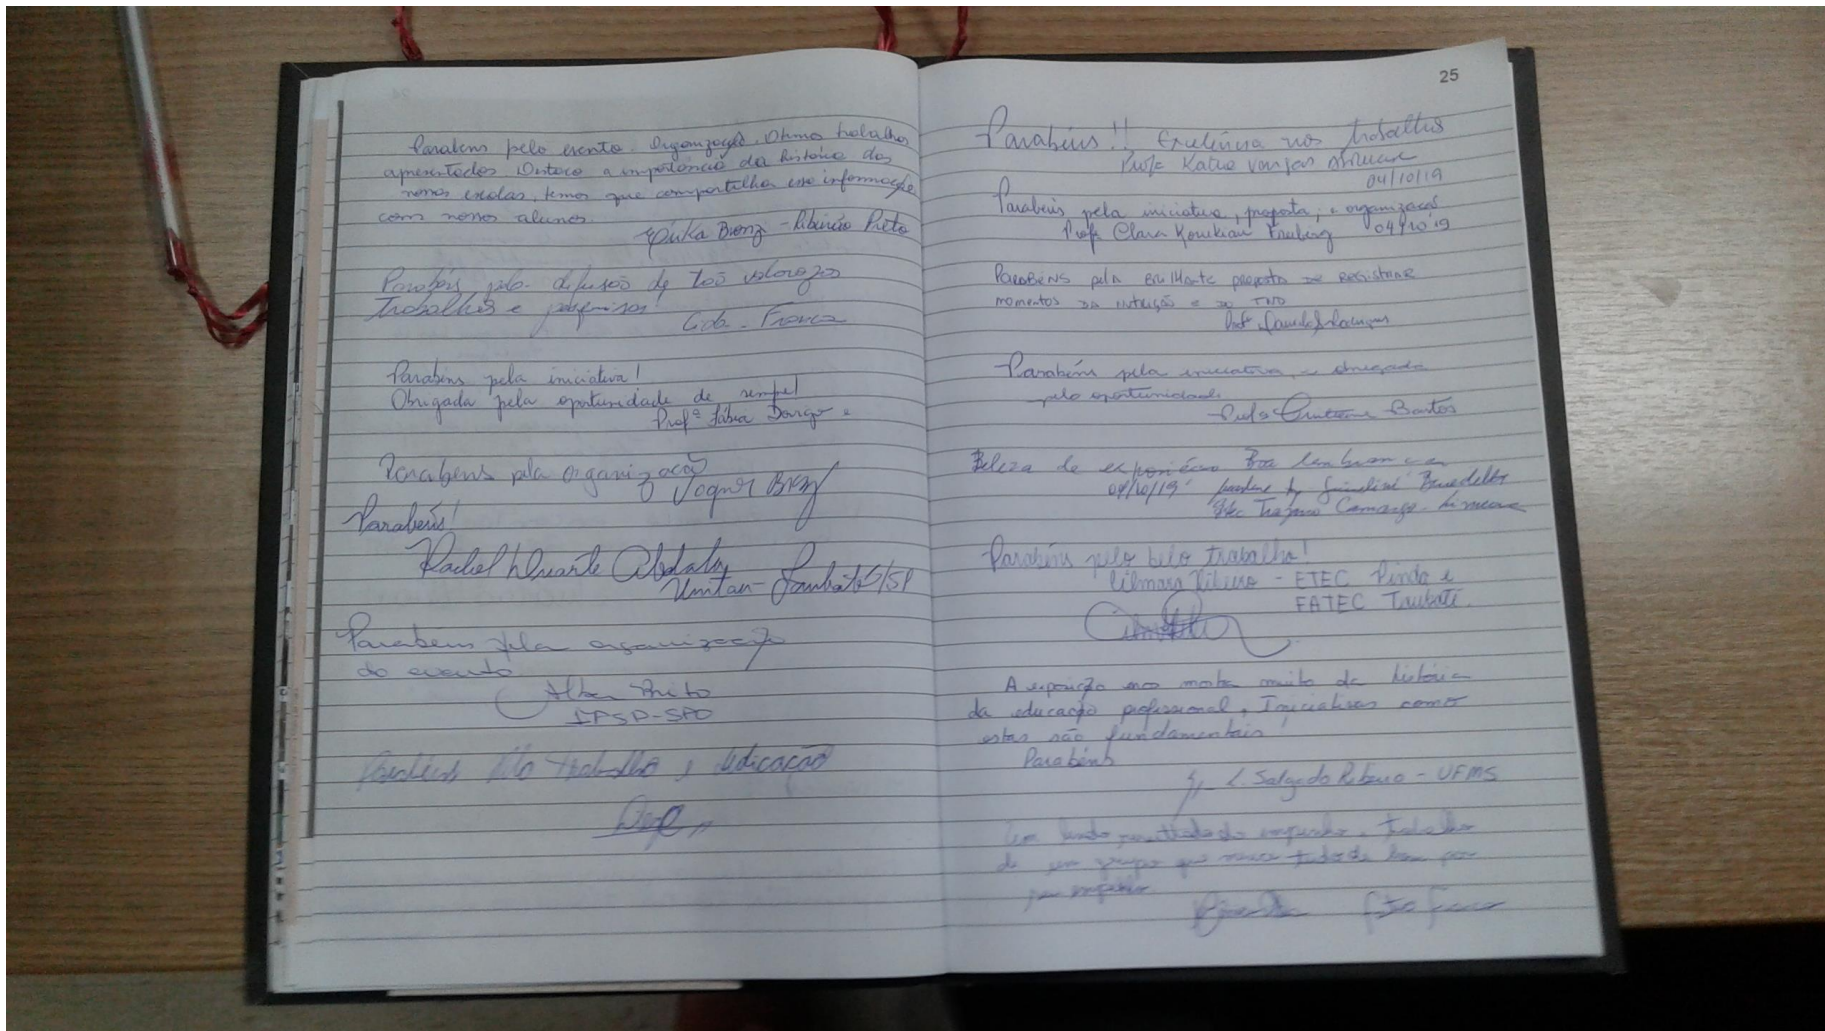 Parabens pelo evento. Organização. Otimos trabalhos
apresentados Destaco a importância da história das
nossas escolas, temos que compartilhar essa informação
com nossos alunos.
Érika Bronzi - Ribeirão Preto
Parabéns pela difusão de tão valorozos
Trabalhos e pesquisas!
Cida - Franca
Parabéns pela iniciativa!
Obrigada pela oportunidade de sempre!
Profª Fábia
Parabens pela organização
Parabéns!
Rachel Duarte Abdala
Unitau - Taubaté/SP
Parabens pela organização
do evento
Brito
IFSP-SPO
Parabéns pelo trabalho e dedicação
25
Parabéns!! Excelência nos trabalhos
Profa Katia Vargas
04/10/19
Parabéns pela iniciativa, proposta, e organização
Profa Clara 04/10/19
Parabéns pela brilhante proposta de registrar
momentos da intuição e do
Parabéns pela iniciativa, e obrigada
pela oportunidade.
Profa Bastos
Beleza de exposição Boa lembrança
04/10/19 Benedetti
Etec Trajano Camargo - Limeira
Parabéns pelo belo trabalho!
Cilmara Ribeiro - ETEC Pinda e
FATEC Taubaté.
A exposição nos mostra muito da história
da educação profissional. Iniciativas como
estas são fundamentais!
Parabéns
L. Salgado Ribeiro - UFMS
Um lindo resultado do Trabalho
de um grupo que merece tudo de bom